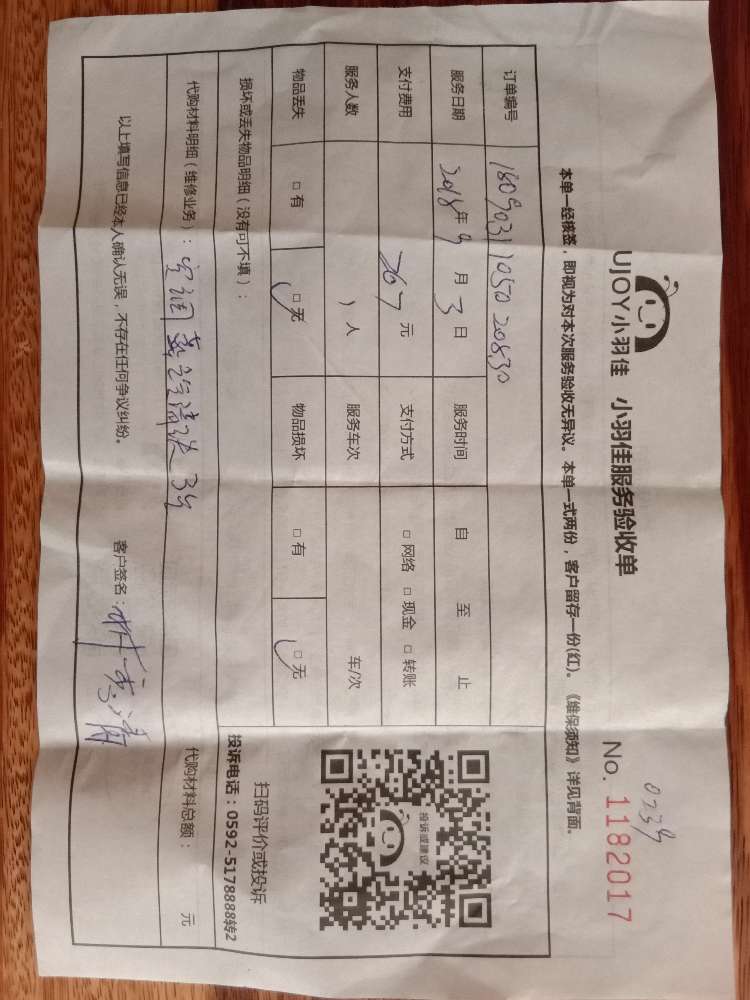 UJOY小羽佳 小羽佳服务验收单
No. 1182017
本单一经核签，即视为对本次服务验收无异议。本单一式两份，客户留存一份(红)。《维保须知》详见背面。
订单编号
服务日期 2018年 9月 3日 服务时间 自 至 止
支付费用 267元 支付方式 □ 网络 □ 现金 □ 转账
服务人数 1人 服务车次 车/次
物品丢失 □ 有 □ 无 物品损坏 □ 有 □ 无
损坏或丢失物品明细（没有可不填）：
投诉或建议
扫码评价或投诉
投诉电话：0592-5178888转2
代购材料明细（维修业务）：空调 清洗 3台
代购材料总额： 元
以上填写信息已经本人确认无误，不存在任何争议纠纷。 客户签名：